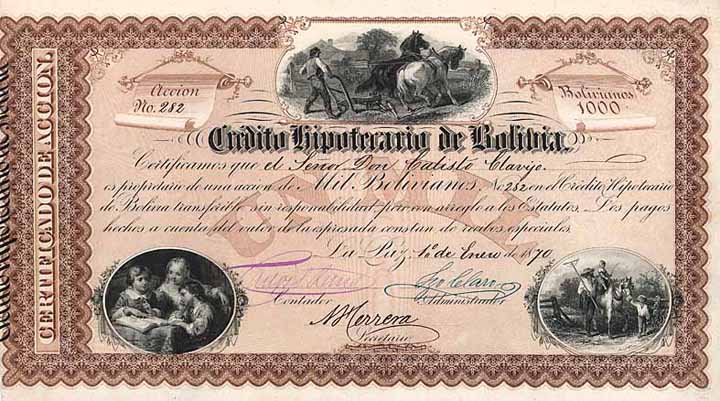 Accion
No. 282
Bolivianos
1000
Crédito Hipotecario de Bolivia
Certificamos que el Señor Don Calisto Clavijo
es propietario de una accion de Mil Bolivianos No 282 en el Crédito Hipotecario
de Bolivia transferible sin responsabilidad pero con arreglo a los Estatutos. Los pagos
hechos a cuenta del valor de la espresada constan de recibos especiales.
La Paz, 1o de Enero de 1870
Contador
Administrador
Secretario
CERTIFICADO DE ACCION.